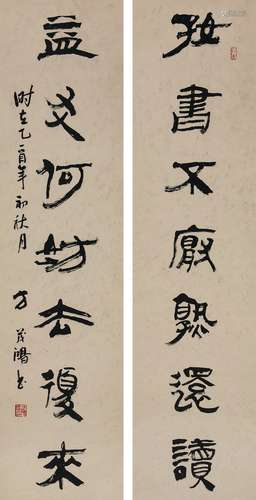 好書不厭熟還讀
益友何妨去復來
时在乙酉年初秋月 方茂鴻书